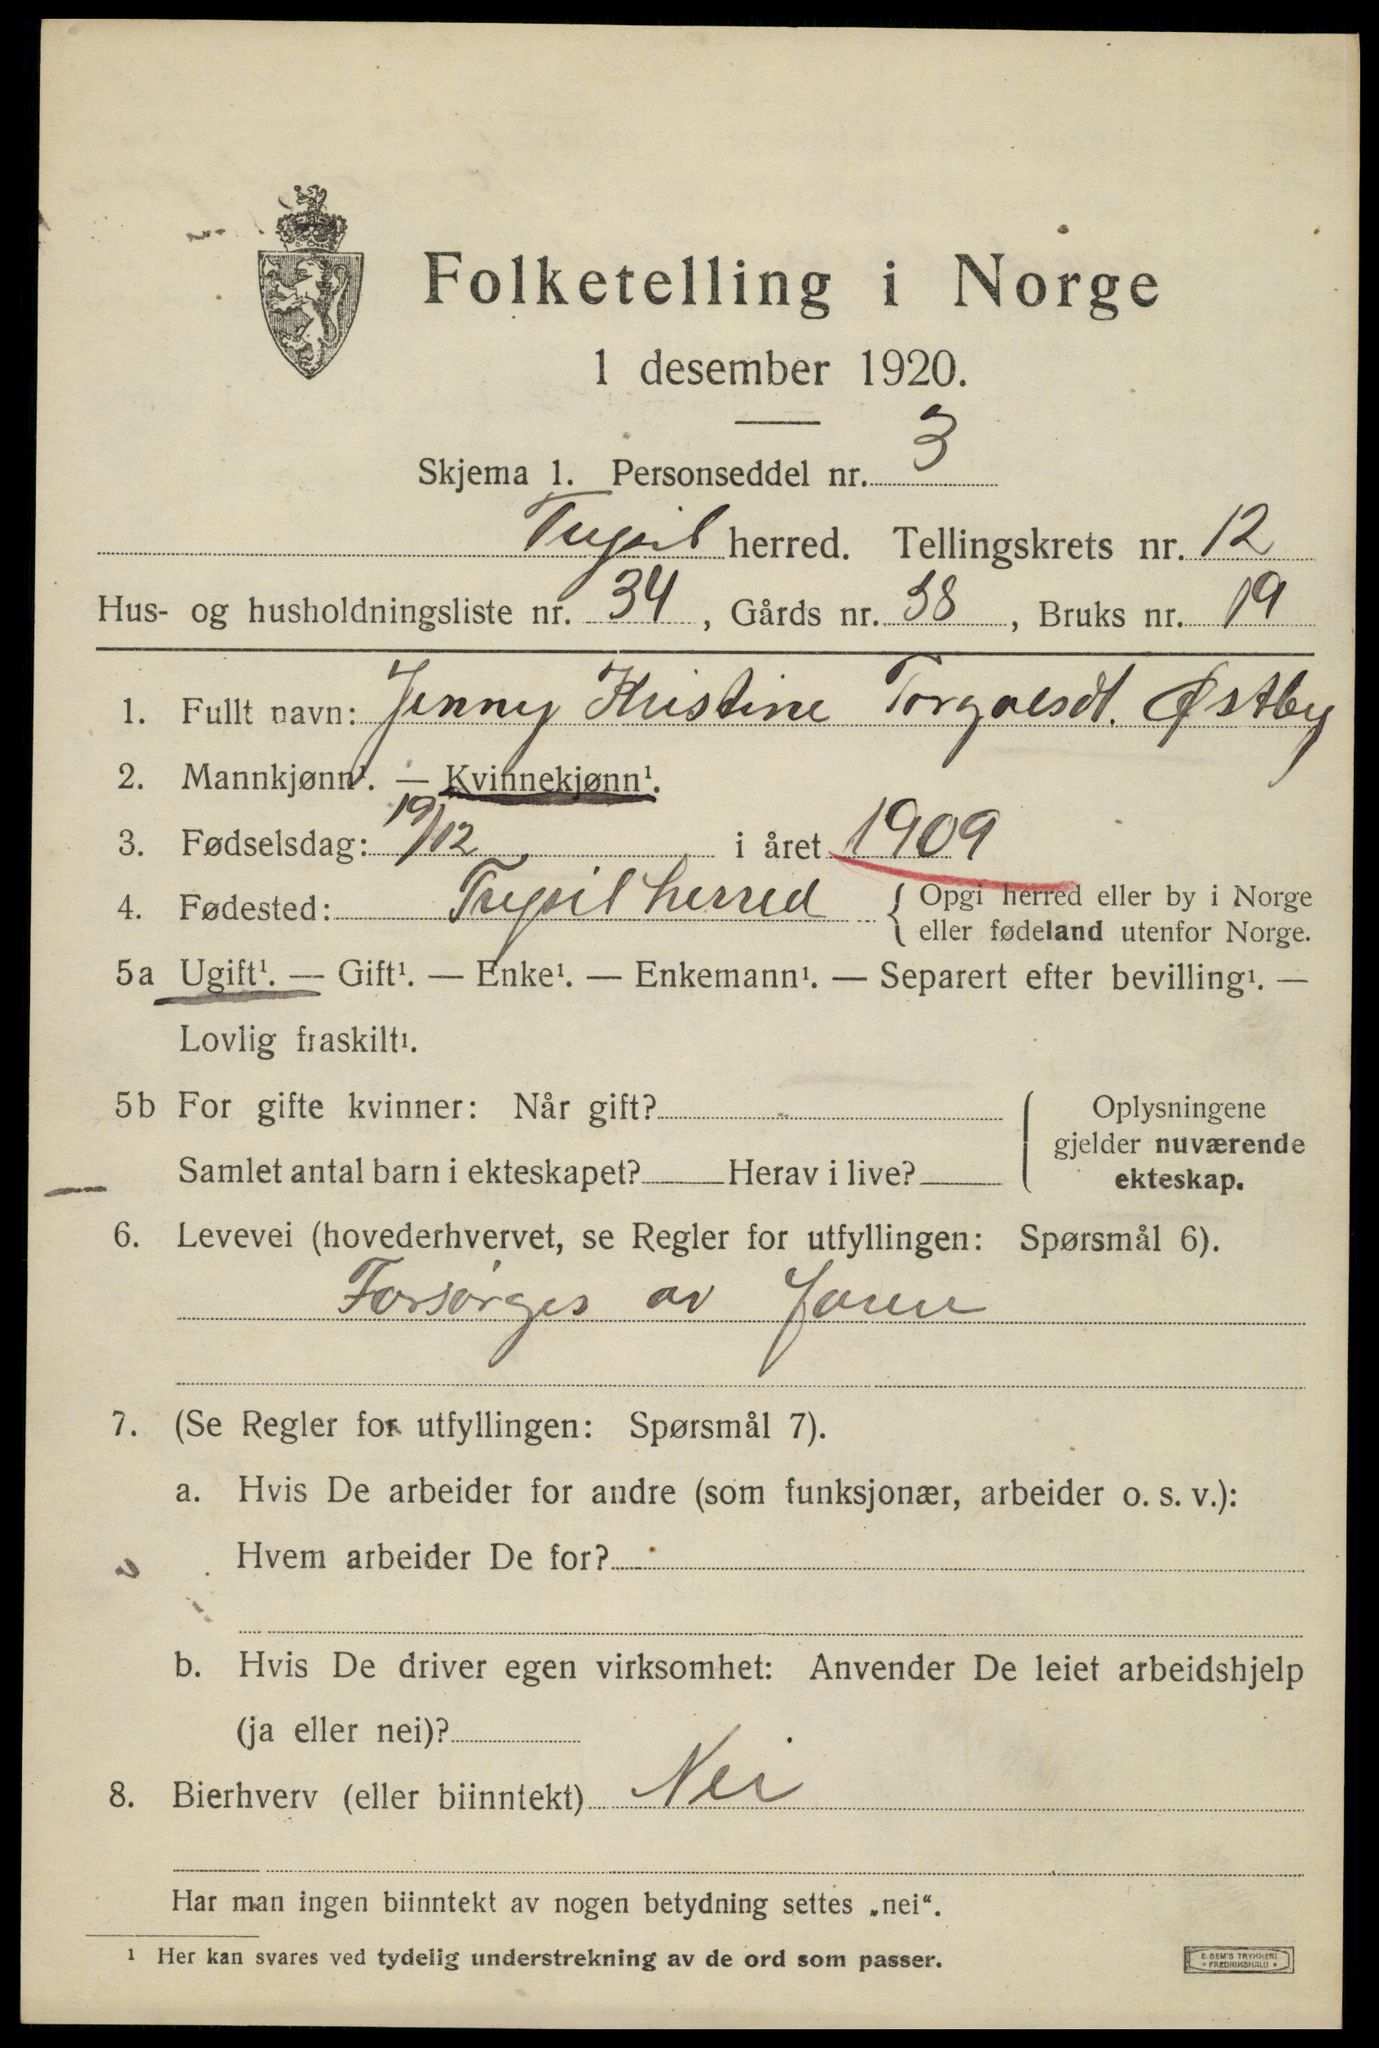 Folketelling i Norge
1 desember 1920.
Skjema 1. Personseddel nr. 3
Trysil herred. Tellingskrets nr. 12
Hus- og husholdningsliste nr. 34, Gårds nr. 38, Bruks nr. 19
1. Fullt navn: Jenny Kristine Torgalsdt. Østby
2. Mannkjønn¹. — Kvinnekjønn¹.
3. Fødselsdag: 19/12 i året 1909
4. Fødested: Trysil herred { Opgi herred eller by i Norge
eller fødeland utenfor Norge.
5a Ugift¹. — Gift¹. — Enke¹. — Enkemann¹. — Separert efter bevilling¹. —
Lovlig fraskilt¹.
5b For gifte kvinner: Når gift?
Samlet antal barn i ekteskapet? Herav i live?
{ Oplysningene
gjelder nuværende
ekteskap.
6. Levevei (hovederhvervet, se Regler for utfyllingen: Spørsmål 6).
Forsørges av
7. (Se Regler for utfyllingen: Spørsmål 7).
a. Hvis De arbeider for andre (som funksjonær, arbeider o. s. v.):
Hvem arbeider De for?
b. Hvis De driver egen virksomhet: Anvender De leiet arbeidshjelp
(ja eller nei)?
8. Bierhverv (eller biinntekt) Nei
Har man ingen biinntekt av nogen betydning settes „nei“.
¹ Her kan svares ved tydelig understrekning av de ord som passer.
E. SEM'S TRYKKERI
• FREDRIKSHALD •